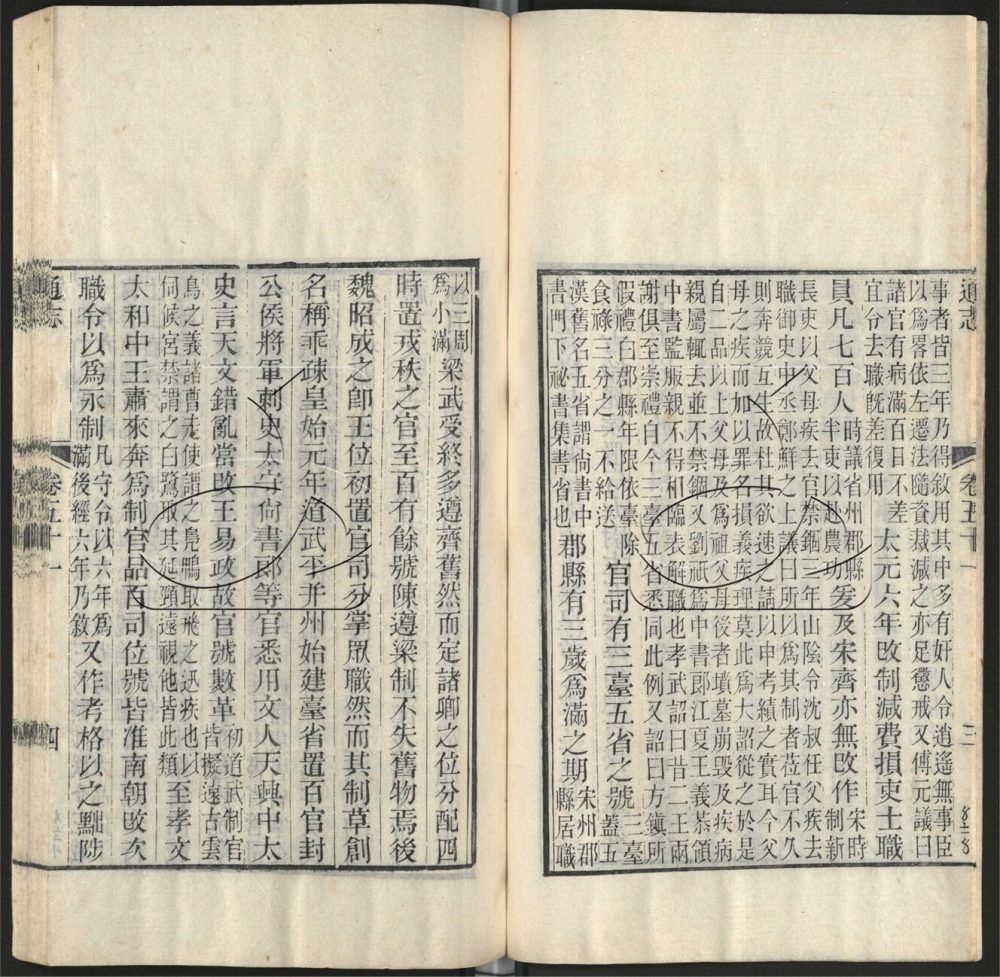 通志
卷五十一
三
事者皆三年乃得敘用其中多有奸人令逍遙無事臣
以為畧依左遷法隨資裁減之亦足懲戒又傅元議曰
諸官有病滿百日不差
宜令去職旣差復用
太元六年改制減費損吏士職
員凡七百人時議省州郡縣
半吏以赴農功
爰及宋齊亦無改作宋時
制新
長吏以父母疾去官禁錮三年山陰令沈叔任父疾去
職御史中丞鄭鮮之上議曰所以為其制者莅官不久
則奔競互生故杜其欲速之請以申考績之實耳今父
母之疾而加以罪名損義疾理莫此為大詔從之於是
自二品以上父母及為祖父母後者墳墓崩毀及疾病
親屬輒去並不禁錮又劉祇為中書郎江夏王義恭領
中書監服親不得相臨表解職也孝武詔曰昔二王兩
謝俱至崇禮自今三臺五省悉同此例又詔曰方鎮所
假禮白郡縣年限依臺除
食祿三分之一不給送
官司有三臺五省之號三臺
蓋五
漢舊名五省謂尚書中
書門下祕書集書省也
郡縣有三歲為滿之期宋州郡
縣居職
以三周
為小滿
梁武受終多遵齊舊然而定諸卿之位分配四
時置戎秩之官至百有餘號陳遵梁制不失舊物焉後
魏昭成之卽王位初置官司分掌眾職然而其制草創
名稱乖疎皇始元年道武平并州始建臺省置百官封
公侯將軍刺史太守尚書郎等官悉用文人天興中太
史言天文錯亂當改王易政故官號數革初道武制官
皆擬遠古雲
鳥之義諸曹走使謂之鳧鴨取飛之迅疾也以
伺候宮禁謂之白鷺取其延頸遠視他皆此類
至孝文
太和中王肅來奔為制官品百司位號皆准南朝改次
職令以為永制凡守令以六年為
滿後經六年乃敘
又作考格以之黜陟
通志
卷五十一
四